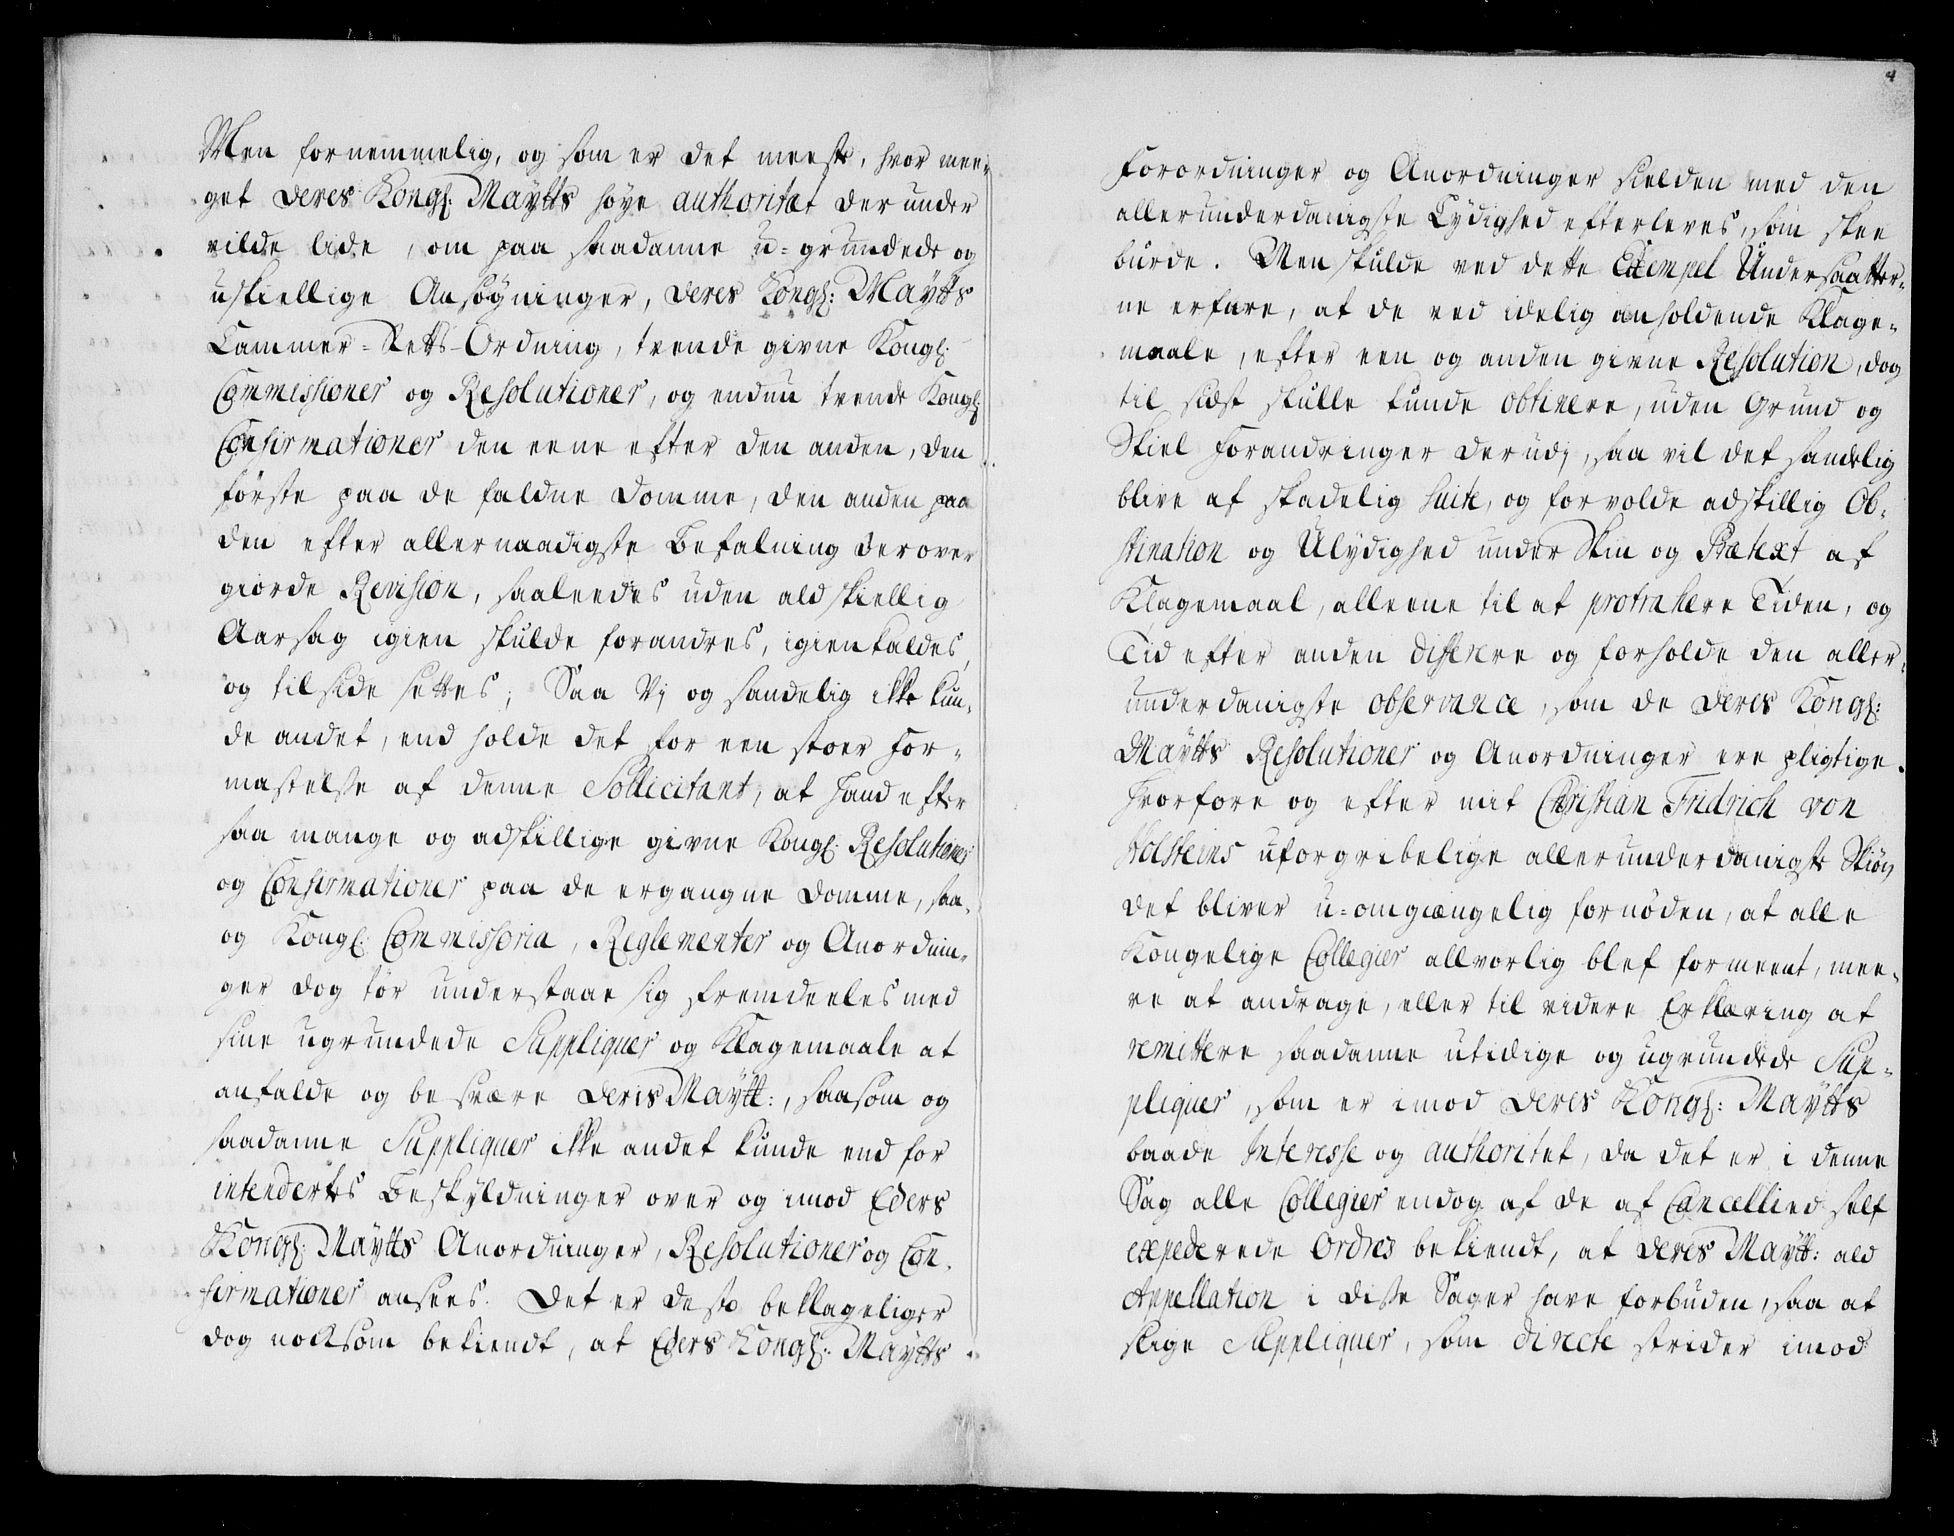 Men fornemmelig, og som er det meeste, hvor mee-
get Deres Kongl: Maytts høye authoritæt derunder
vilde lide, om paa saadanne u-grundede og
uskiellige Ansøgninger, Deres Kongl: Maytts
Cammer-Retts-Ordning, trende givne Kongl:
Commissioner og Resolutioner, og endnu trende Kongl:
Confirmationer den eene efter den anden, den
første paa de faldne Domme, den anden paa
den efter allernaadigste Befalning derover
giorde Revision, saaleedes uden ald skiellig
Aarsag igien skulde forandres, igienkaldes,
og til side settes; Saa Vj og sandelig ikke kun-
de andet, end holde det for een stoer For-
mastelse af denne Sollicitant, at hand efter
saa mange og adskillige givne Kongl: Resolutioner
og Confirmationer paa de ergangne Domme, saa-
og Kongl: Commissoria, Reglementer og Anordnin-
ger dog tør understaae sig fremdeeles med
sine ugrundede Suppliquer og Klagemaale at
anfalde og besvære Deris Maytt:, saasom og
saadanne Suppliquer ikke andet kunde end for
intenderte Beskyldninger over og imod Eders
Kongl: Maytts Anordninger, Resolutioner og Con-
firmationer ansees. Det er desto beklageliger
dog noksom bekiendt, at Eders Kongl: Maytts
4
Forordninger og Anordninger sielden med den
allerunderdanigste Lydighed efterleves, som skee
burde. Men skulde ved dette Exempel Undersaatter-
ne erfare, at de ved idelig anholdende Klage-
maale, efter een og anden givne Resolution, dog
til sidst skulle kunde obtinere, uden Grund og
Skiel Forandringer derudj, saa vil det sandelig
blive af skadelig suite, og forvolde adskillig Ob-
stination og Ulydighed under Skin og Prætext af
Klagemaal, alleene til at protrahere Tiden, og
Tid efter anden differere og forholde den aller-
underdanigste observance, som de Deres Kongl:
Maytts Resolutioner og Anordninger ere pligtige.
Hvorfore og efter mit Christian Fridrich von
Holsteins uforgribelige allerunderdanigste Skiøn
det bliver u-omgiængelig fornøden, at alle
Kongelige Collegier allvorlig blef formeent, mee-
re at andrage, eller til videre Erklæring at
remittere saadanne utidige og ugrundede Sup-
pliquer, som er imod Deres Kongl: Maytts
baade Interesse og authoritet, da det er i denne
Sag alle Collegier endog af de af Cancellied self
expederede Ordres bekiendt, at Deres Maytt: ald
Appellation i disse Sager have forbuden, saa at
slige Suppliquer, som directe strider imod